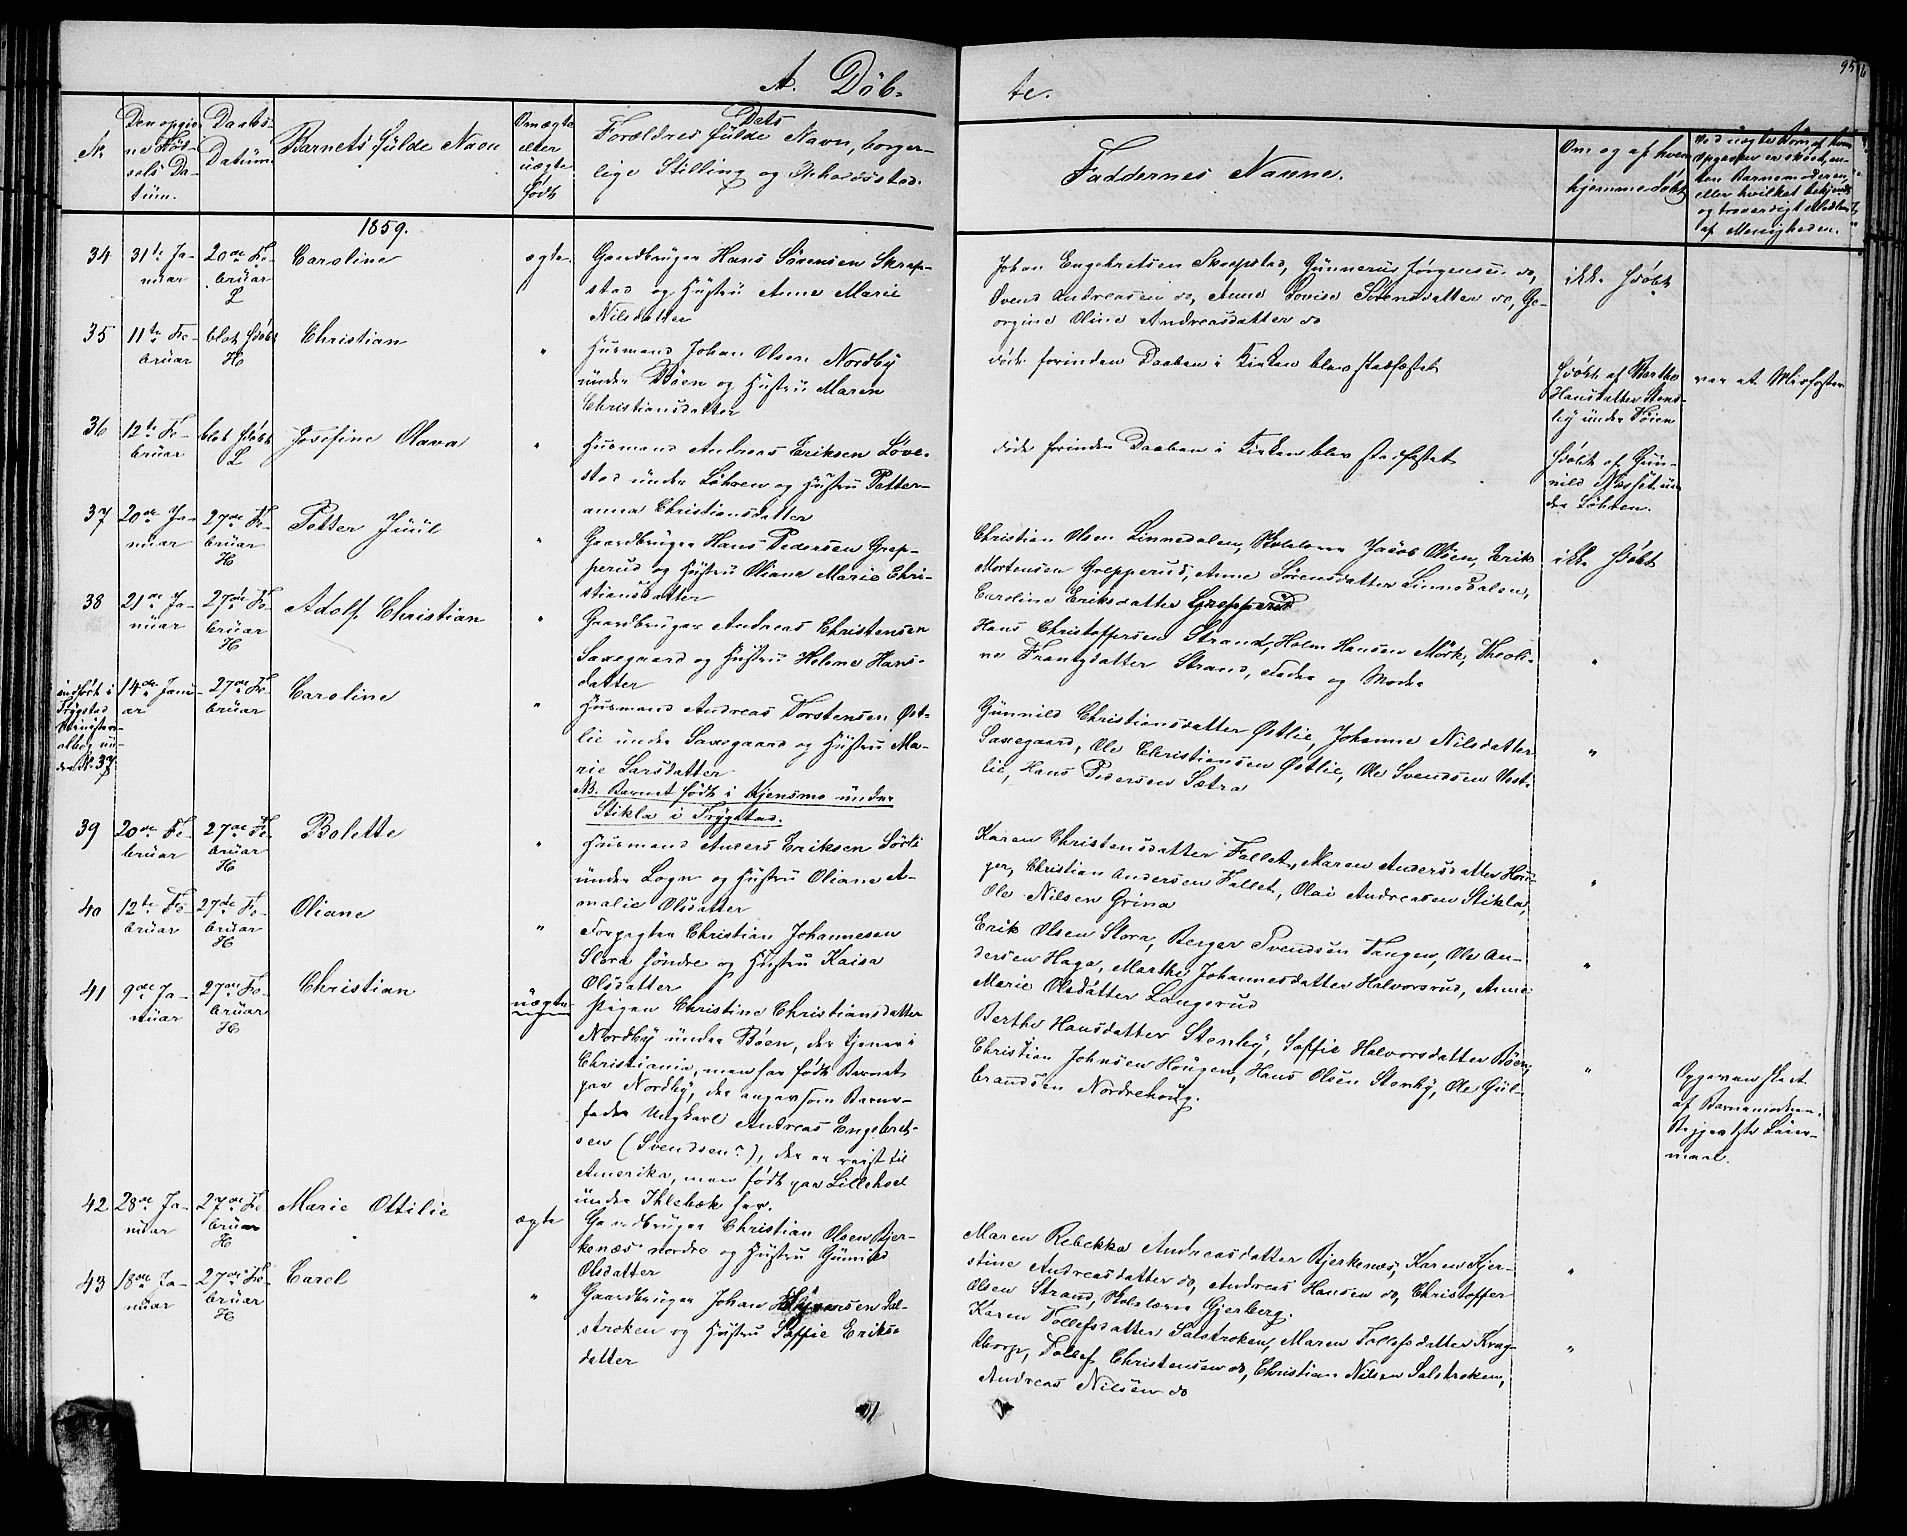 A. Döb-
te.
95
№
Den opgiv-
ne Föd-
sels Da-
tum.
Daabs-
Datum
Barnets fulde Navn
Om ægte
eller
uægte
født
Dets
Forældres fulde Navn, borger-
lige Stilling og Opholdssted.
Faddernes Navne.
Om og af hvem
hjemmedøbt
1859.
34
31te Ja-
nuar
20de Fe-
bruar
L
Caroline
ægte
Gaardbruger Hans Sørensen Skrep-
stad og Hustru Anne Marie
Nilsdatter
Johan Engebretsen Skrepstad, Gunnerus Jørgensen do,
Svend Andreasen do, Anne Lovise Sørensdatter do, Ge-
orgine Oline Andreasdatter do
ikke hjdøbt
35
11te Fe-
bruar
blot hjdøbt
H
Christian
"
Husmand Johan Olsen Nordby
under Böen og Hustru Maren
Christiansdatter
døde forinden Daaben i Kirken blev stadfæstet
hjdøbt af Berthe
Hansdatter Stens-
by under Böen
var et Misfoster
36
12te Fe-
bruar
blot hjdøbt
L
Josefine Olava
"
Husmand Andreas Eriksen Løve-
stad under Løhren og Hustru Petter-
anna Christiansdatter
døde forinden Daaben i Kirken blev stadfæstet
hjdøbt af Gun-
nild Næsset un-
der Løhren.
37
20de Ja-
nuar
27de Fe-
bruar
H
Petter Juul
"
Gaardbruger Hans Pedersen Grep-
perud og Hustru Oliane Marie Chri-
stiansdatter
Christian Olsen Linnedalen, Skolelærer Jacob Olsen, Erik
Mortensen Grepperud, Anne Sørensdatter Linnedalen,
Caroline Eriksdatter Grepperud
ikke hjdøbt
38
21de Ja-
nuar
27de Fe-
bruar
H
Adolf Christian
"
Gaardbruger Andreas Christensen
Saxegaard og Hustru Helene Hans-
datter
Hans Christoffersen Strand, Holm Hansen Mörk, Theoli-
ne Frantzdatter Strand, Fader og Moder
"
indført i
Trygstad
Minister-
albog un-
der № 37
14de Janu-
ar
27de Fe-
bruar
Caroline
"
Husmand Andreas Torstensen Øst-
lie under Saxegaard og Hustru Ma-
rie Larsdatter
NB. Barnet født i Kjensmo under
Stikla i Trygstad.
Gunnild Christiansdatter Østlie, Johanne Nilsdatter
Saxegaard, Ole Christiansen Østlie, Ole Svendsen Vest-
lie, Hans Pedersen Sætra
"
39
20de Fe-
bruar
27de Fe-
bruar
H
Bolette
"
Husmand Anders Eriksen Sörli
under Logn og Hustru Oliane A-
malie Olsdatter
Karen Christensdatter Fallet, Maren Andersdatter Hau-
ger, Christian Andersen Fallet, Olai Andreasen Stikla,
Ole Nilsen Grina
"
40
12te Fe-
bruar
27de Fe-
bruar
H
Oliane
"
Forpagter Christian Johannesen
Slora søndre og Hustru Kaisa
Olsdatter
Erik Olsen Slora, Berger Svendsen Tangen, Ole An-
dersen Haga, Marthe Johannesdatter Halvorsrud, Anne
Marie Olsdatter Langerud
"
41
9de Ja-
nuar
27de Fe-
bruar
H
Christian
uægte
Pigen Christine Christiansdatter
Nordby under Böen, der tjener i
Christiania, men har født Barnet
paa Nordby, der angav som Barne-
fader Ungkarl Andreas Engebret-
sen (Svendsen?), der er reist til
Amerika, men født paa Lilleheel
under Ihlebæk her.
Berthe Hansdatter Stenby, Soffie Halvorsdatter Böen,
Christian Johnsen Hougen, Hans Olsen Stenby, Ole Gul-
brandsen Nordrehoug.
"
Opgaven skeet
af Barnemoderen.
Leier-
maal.
42
28de Ja-
nuar
27de Fe-
bruar
H
Marie Ottilie
ægte
Gaardbruger Christian Olsen Bjer-
kenæs nordre og Hustru Gunnild
Olsdatter
Maren Rebekka Andreasdatter Bjerkenæs, Karen Kjer-
stine Andreasdatter do, Andreas Hansen do, Christoffer
Olsen Strand, Skolelærer Gjerberg.
"
43
18de Ja-
nuar
27de Fe-
bruar
H
Carel
"
Gaardbruger Johan Syversen Sal-
stroken og Hustru Soffie Eriks-
datter
Karen Tollefsdatter Salstroken, Maren Tollefsdatter Krag-
torp, Tollef Christensen do, Christian Nilsen Salstroken,
Andreas Nilsen do
"